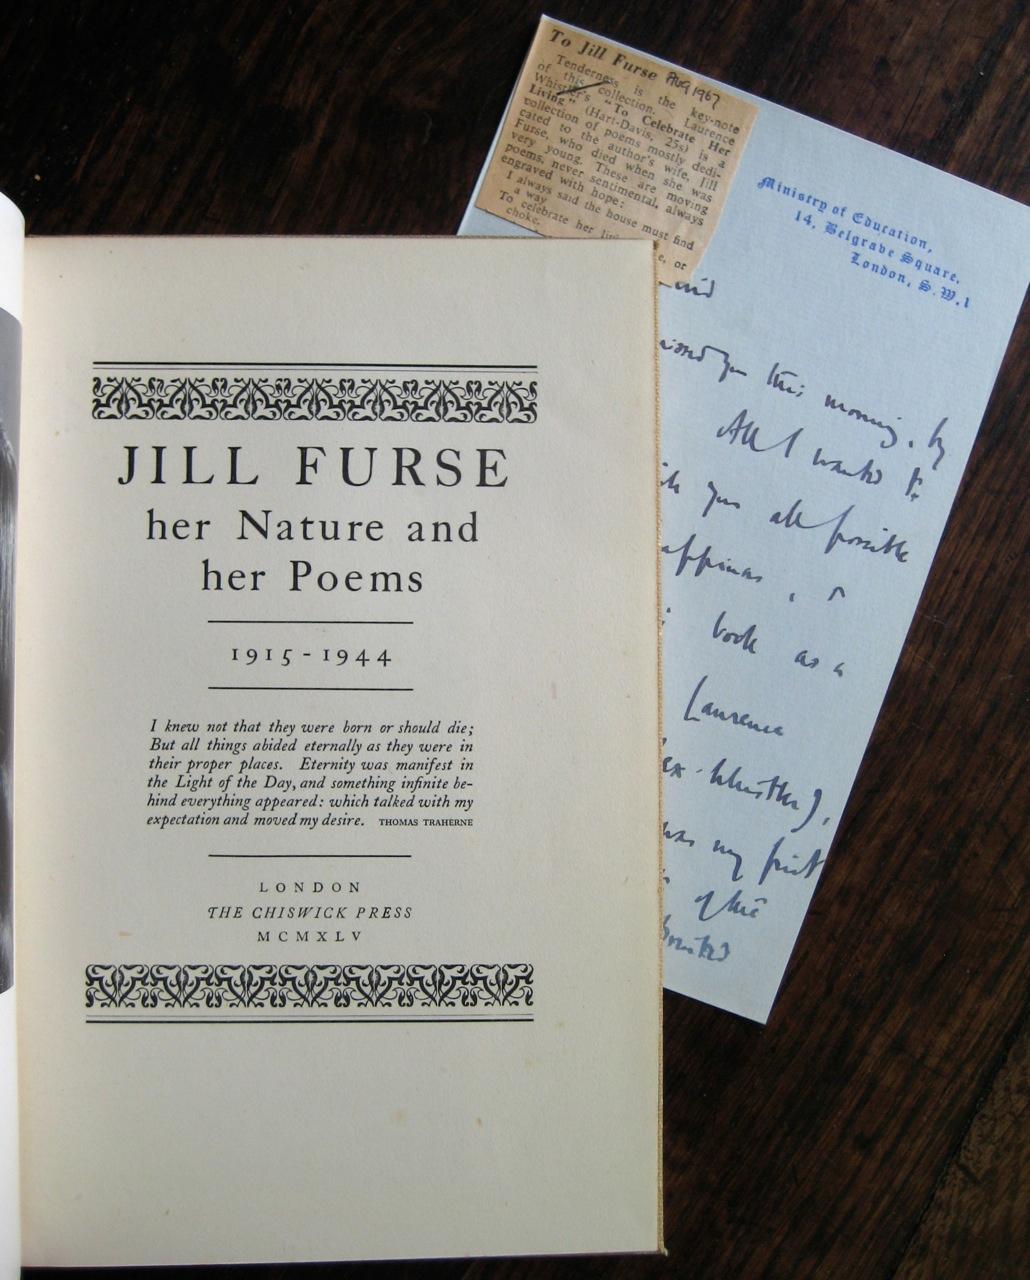 To Jill Furse Aug 1967
Tenderness is the key-note
of this collection. Laurence
Whistler's "To Celebrate Her
Living" (Hart-Davis, 25s) is a
collection of poems mostly dedi-
cated to the author's wife, Jill
Furse, who died when she was
very young. These are moving
poems, never sentimental, always
engraved with hope:
I always said the house must find
a way
To celebrate her
choke. e, or
Ministry of Education,
14, Belgrave Square,
London, S.W.1
you this morning, by
All I wanted to
you all possible
book as a
Laurence
was my first
of his
JILL FURSE
her Nature and
her Poems
1915-1944
I knew not that they were born or should die;
But all things abided eternally as they were in
their proper places. Eternity was manifest in
the Light of the Day, and something infinite be-
hind everything appeared: which talked with my
expectation and moved my desire. THOMAS TRAHERNE
LONDON
THE CHISWICK PRESS
MCMXLV